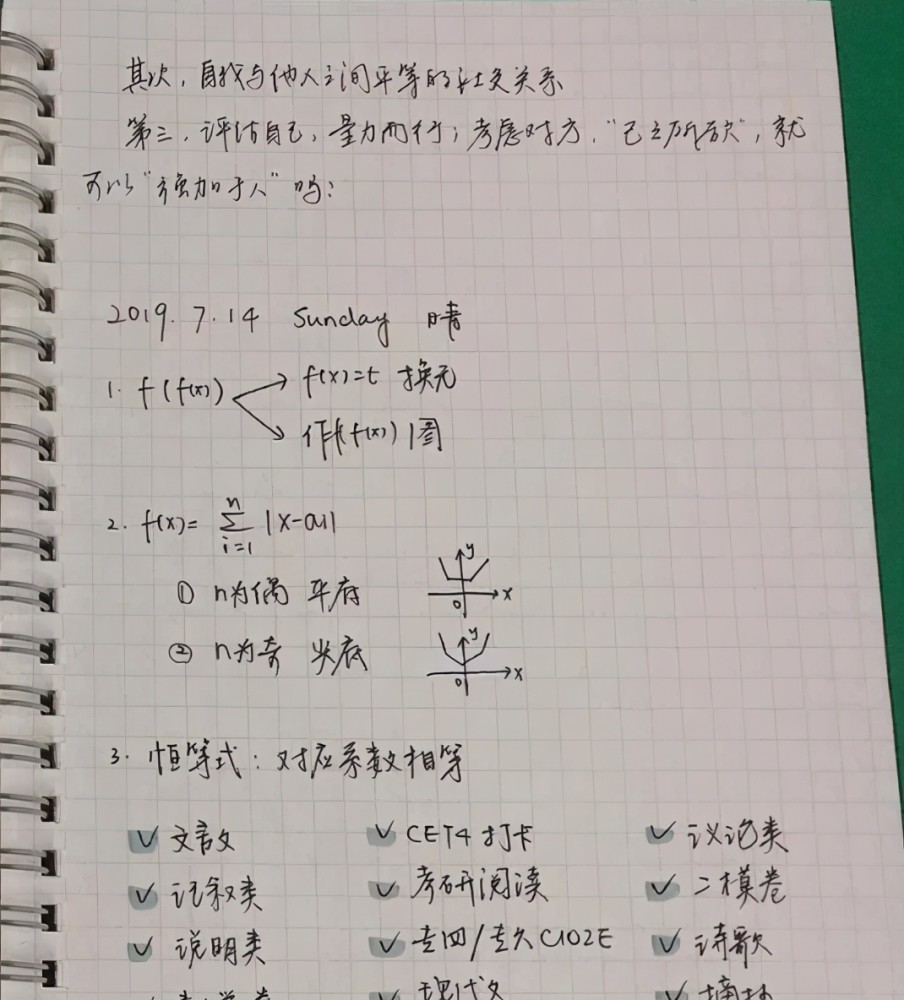 其次，自我与他人之间平等的社交关系
第三，评估自己，量力而行；考虑对方，“己之所欲”，就
可以“强加于人”吗？
2019.7.14 Sunday 晴
1. f(f(x)) f(x)=t 换元
作f(f(x))图
2. f(x)= n∑i=1 |x-ai|
① n为偶 平底 y 0 x
② n为奇 尖底 y 0 x
3. 恒等式：对应系数相等
✓文言文 ✓CET4打卡 ✓议论类
✓记叙类 ✓考研阅读 ✓二模卷
✓说明类 ✓专四/专八CLOZE ✓诗歌
✓现代文 ✓摘抄